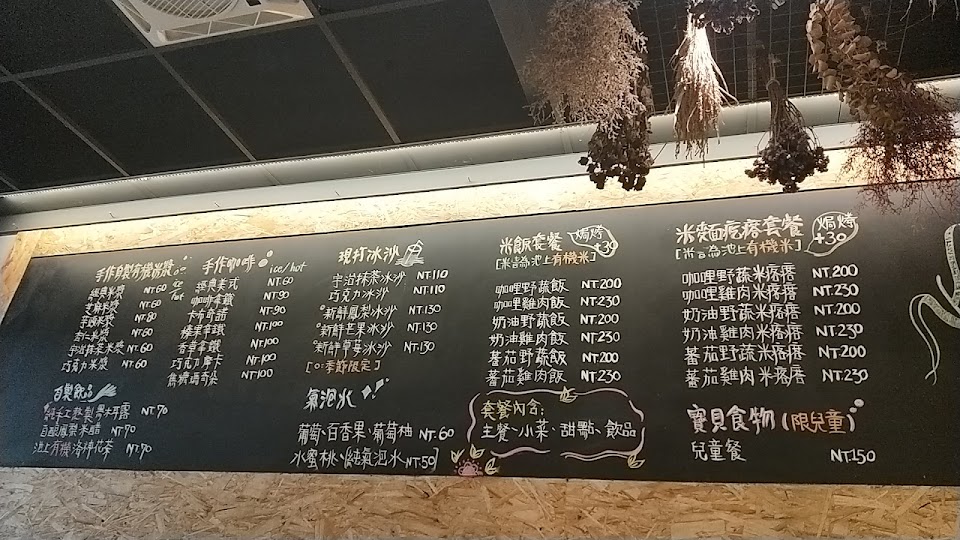 手作自製有機米漿
ice
hot
經典米漿 NT.60
NT.60
芋頭米漿 NT.80
杏仁米漿 NT.60
宇治抹茶米漿 NT.60
巧克力米漿 NT.60
手作咖啡 ice/hot
經典美式 NT.60
咖啡拿鐵 NT.90
卡布奇諾 NT.90
榛果拿鐵 NT.100
香草拿鐵 NT.100
巧克力摩卡 NT.100
焦糖瑪奇朵 NT.100
現打冰沙
宇治抹茶冰沙 NT.110
巧克力冰沙 NT.110
°新鮮鳳梨冰沙 NT.130
°新鮮芒果冰沙 NT.130
°新鮮草莓冰沙 NT.130
[○:季節限定]
米飯套餐 焗烤+30
[米皆為池上有機米]
咖哩野蔬飯 NT.200
咖哩雞肉飯 NT.230
奶油野蔬飯 NT.200
奶油雞肉飯 NT.230
蕃茄野蔬飯 NT.200
蕃茄雞肉飯 NT.230
米麵疙瘩套餐 焗烤+30
[米皆為池上有機米]
咖哩野蔬米疙瘩 NT.200
咖哩雞肉米疙瘩 NT.230
奶油野蔬米疙瘩 NT.200
奶油雞肉米疙瘩 NT.230
蕃茄野蔬米疙瘩 NT.200
蕃茄雞肉米疙瘩 NT.230
自製飲品
純手工熬製 木耳露 NT.70
自釀鳳梨米醋 NT.70
池上有機洛神花茶 NT.70
氣泡水
葡萄、百香果、葡萄柚 NT.60
水蜜桃、純氣泡水 NT.50
套餐內含:
主餐、小菜、甜點、飲品
寶貝食物(限兒童)
兒童餐 NT.150